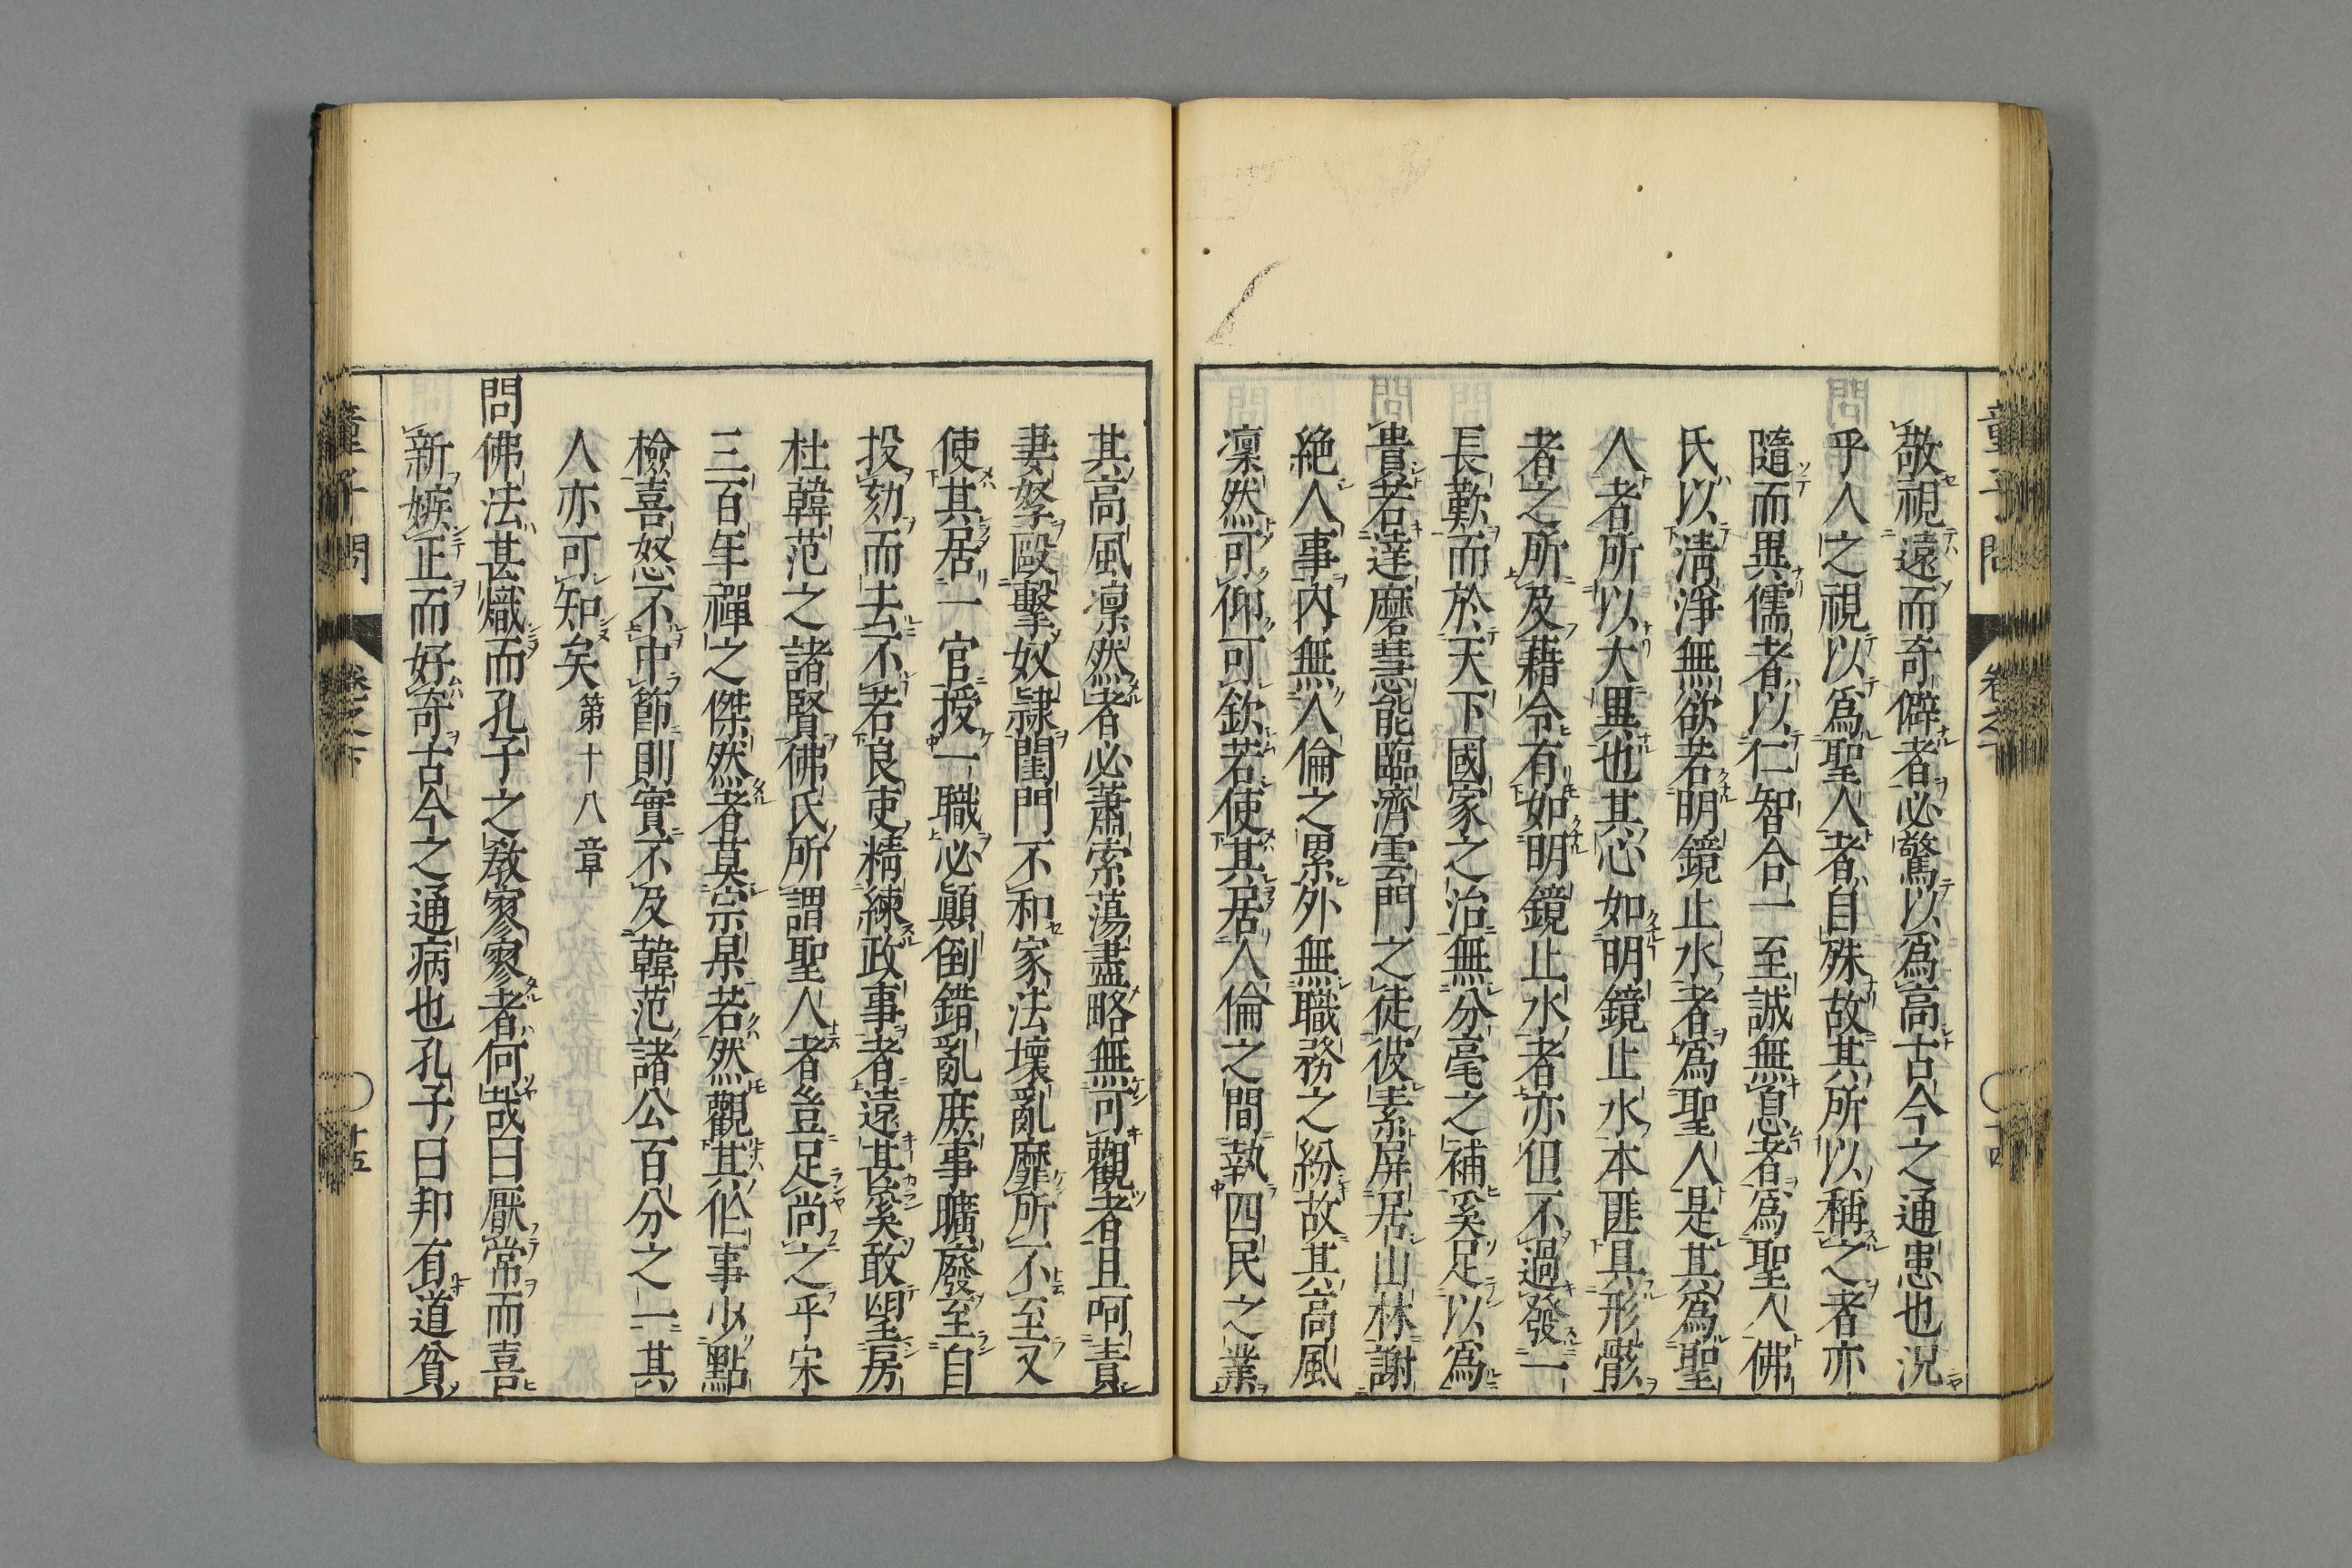 敬視遠而奇僻者必驚以爲高古今之通患也況
乎人之視以爲聖人者自殊故其所以稱之者亦
隨而異儒者以仁智合一至誠無息者爲聖人佛
氏以清淨無欲若明鏡止水者爲聖人是其爲聖
人者所以大異也其心如明鏡止水本匪具形骸
者之所及藉令有如明鏡止水者亦但不過發一
長歎而於天下國家之治無分毫之補奚足以爲
貴若達磨慧能臨濟雲門之徒彼素屏居山林謝
絶人事内無人倫之累外無職務之紛故其高風
凜然可仰可欽若使其居人倫之間執四民之業
其高風凛然者必蕭索蕩盡略無可觀者且呵責
妻孥毆擊奴隷閨門不和家法壞亂靡所不至又
使其居一官授一職必顚倒錯亂庶事曠廢至自
投劾而去不若良吏精練政事者遠甚奚敢望房
杜韓范之諸賢佛氏所謂聖人者豈足尚之乎宋
三百年禪之傑然者莫宗杲若然觀其作事少點
檢喜怒不中節則實不及韓范諸公百分之一其
人亦可知矣第十八章
問佛法甚熾而孔子之敎寥寥者何哉曰厭常而喜
新嫉正而好奇古今之通病也孔子曰邦有道貧
童子問 卷之下